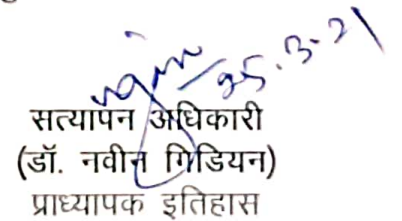 25.3.21
सत्यापन अधिकारी
(डॉ. नवीन गिडियन)
प्राध्यापक इतिहास